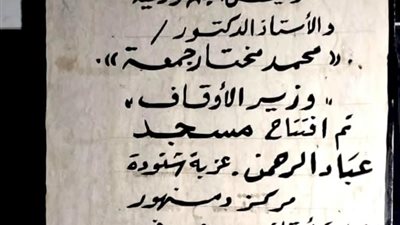 والأستاذ الدكتور /
«محمد مختار جمعة».
"وزير الأوقاف"
تم افتتاح مسجد
عباد الرحمن. عزبة شنودة
مركز دمنهور